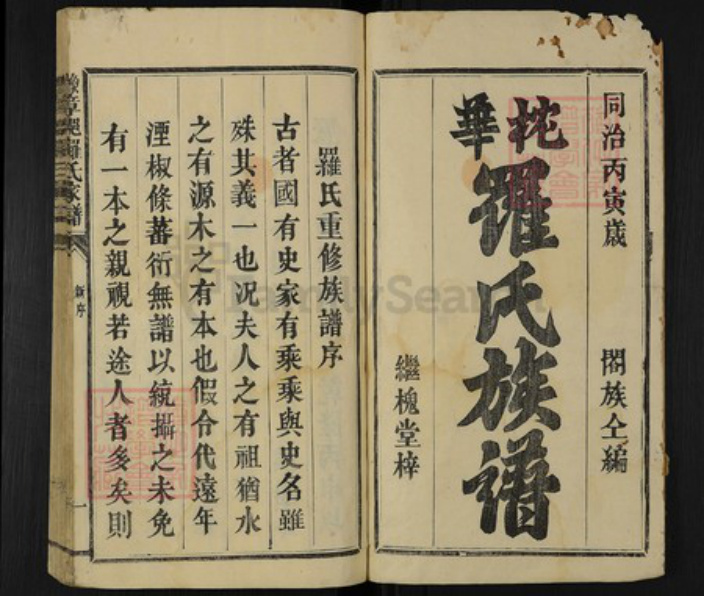 同治丙寅歲 閤族仝編
桄華
羅氏族譜
繼槐堂梓
羅氏重修族譜序
古者國有史家有乘乘與史名雖
殊其義一也况夫人之有祖猶水
之有源木之有本也假令代遠年
湮椒條蕃衍無譜以統攝之未免
有一本之親視若途人者多矣則
羅氏家譜
新序
一
FamilySearch